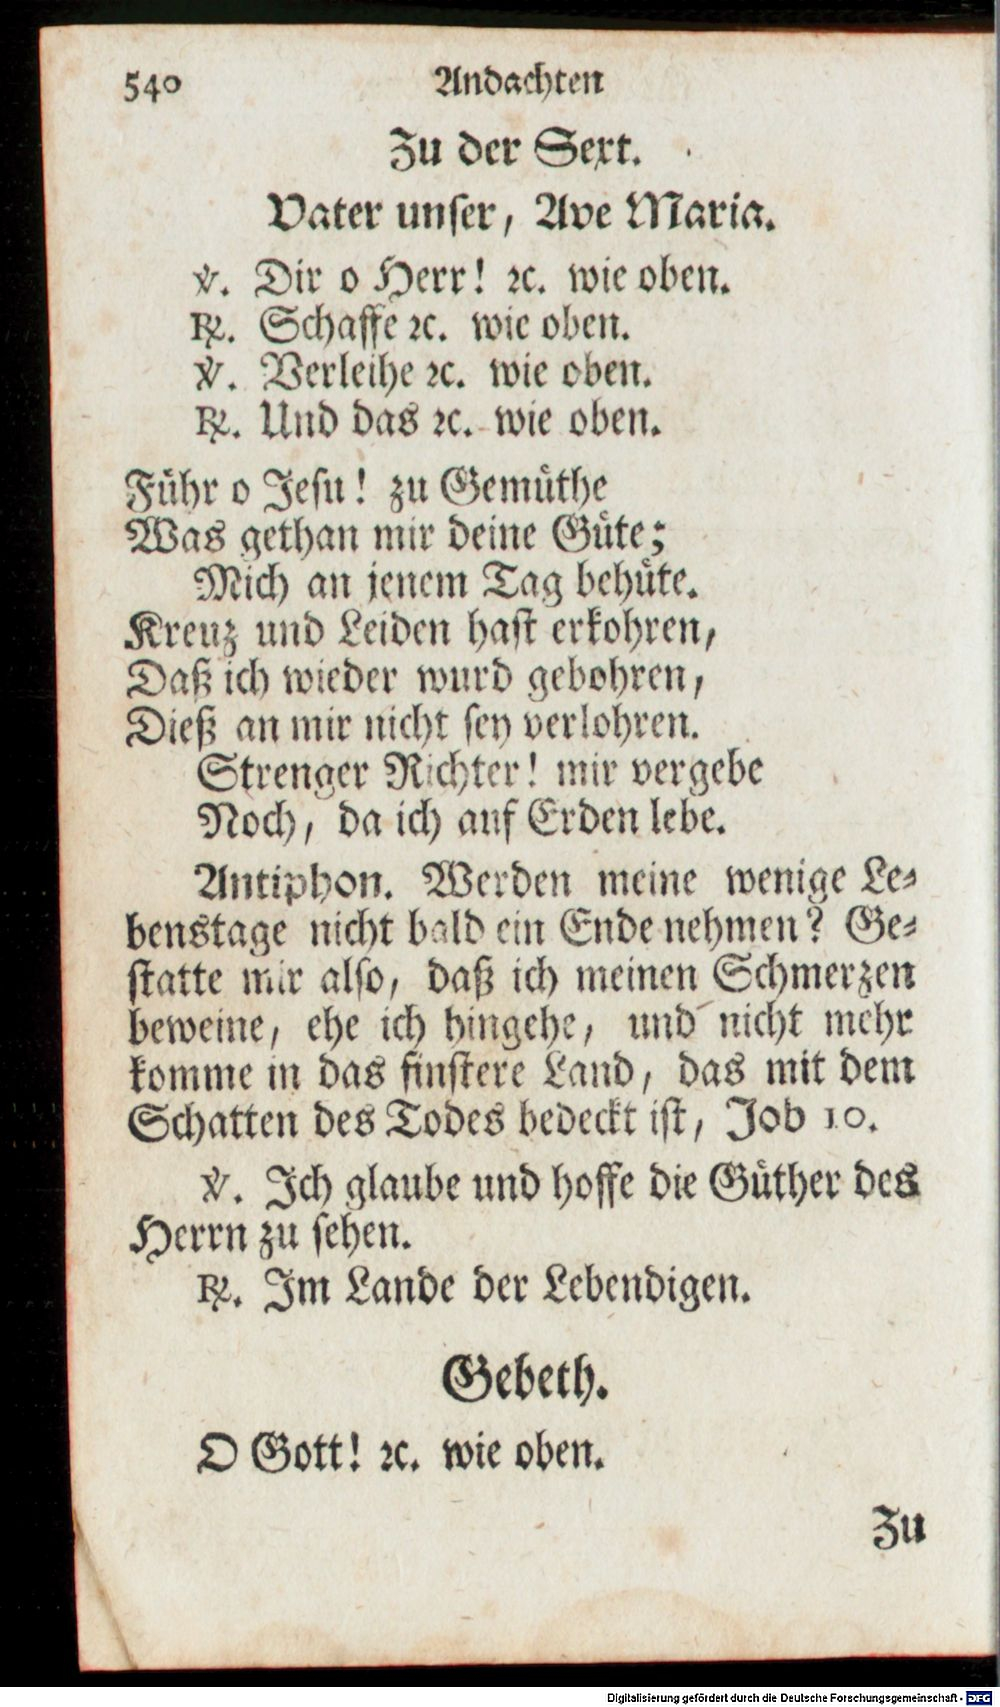 540 Andachten
Zu der Sext.
Vater unser, Ave Maria.
℣. Dir o Herr! ꝛc. wie oben.
℟. Schaffe ꝛc. wie oben.
℣. Verleihe ꝛc. wie oben.
℟. Und das ꝛc. wie oben.
Führ o Jesu! zu Gemüthe
Was gethan mir deine Güte;
Mich an jenem Tag behüte.
Kreuz und Leiden hast erkohren,
Daß ich wieder wurd gebohren,
Dieß an mir nicht sey verlohren.
Strenger Richter! mir vergebe
Noch, da ich auf Erden lebe.
Antiphon. Werden meine wenige Le-
benstage nicht bald ein Ende nehmen? Ge-
statte mir also, daß ich meinen Schmerzen
beweine, ehe ich hingehe, und nicht mehr
komme in das finstere Land, das mit dem
Schatten des Todes bedeckt ist, Job 10.
℣. Ich glaube und hoffe die Güther des
Herrn zu sehen.
℟. Im Lande der Lebendigen.
Gebeth.
O Gott! ꝛc. wie oben.
Zu
Digitalisierung gefördert durch die Deutsche Forschungsgemeinschaft - DFG